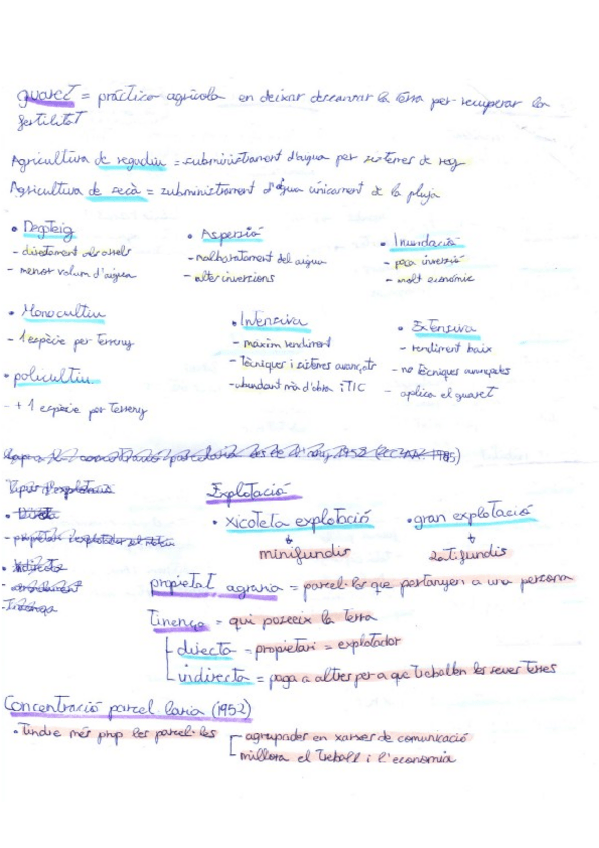 guaret = práctica agrícola en deixar descansar la terra per recuperar la
fertilitat
Agricultura de regadiu = subministrament d'aigua per sistemes de reg
Agricultura de secà = zubministrament d'aigua únicament de la pluja
• Degoteig
- directament als arrels
- menor volum d'aigua
• Aspersió
- malbaratament del aigua
- altes inversions
• Inundació
- poca inversió
- molt econòmic
• Monocultiu
- 1 espècie per terreny
• policultiu
- + 1 espècie per terreny
• Intensiva
- màxim rendiment
- Tècniques i sistemes avançats
- abundant mà d'obra i TIC
• Extensiva
- rendiment baix
- no tècniques avançades
- aplica el guaret
Tipus d'explotació
• Directa
• Indirecta
- arrendament
Explotació
• xicoteta explotació
minifundis
• gran explotació
latifundis
propietat agrària = parcel·les que pertanyen a una persona
tinença = qui posseix la terra
directa = propietari = explotador
indirecta = paga a altres per a que treballen les seves terres
Concentració parcel·laria (1952)
• Tindre més prop les parcel·les
agrupades en xarxes de comunicació
millora el treball i l'economia